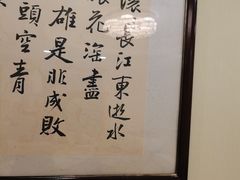 滾長江東逝水
浪花滔盡
雄是非成敗
頭空青